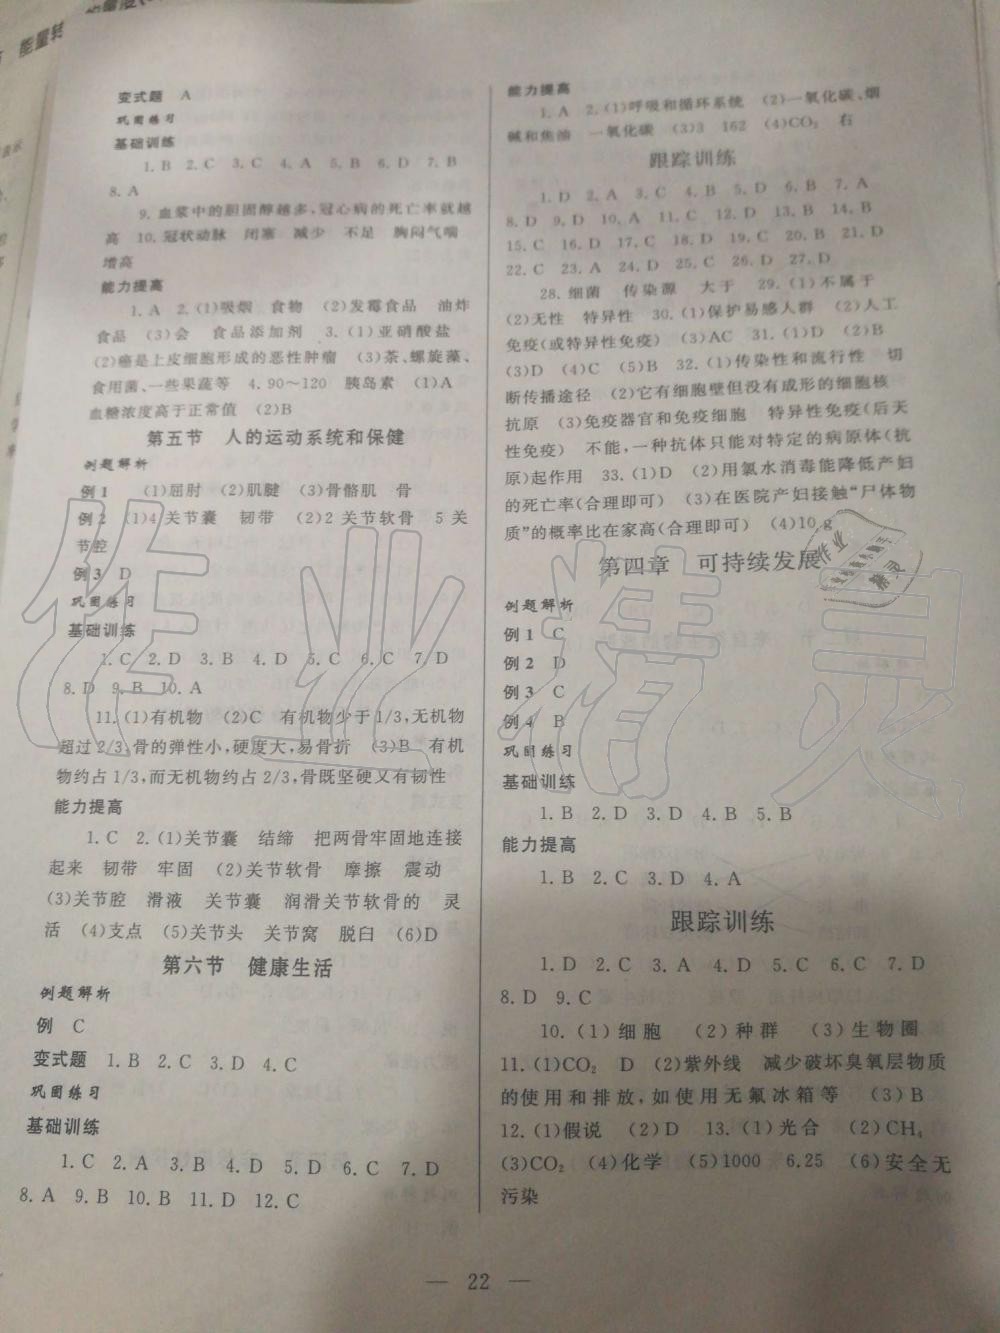 能量转
变式题　A
巩固练习
基础训练
1. B　2. C　3. C　4. A　5. B　6. D　7. B
8. A
9. 血浆中的胆固醇越多,冠心病的死亡率就越
高　10. 冠状动脉　闭塞　减少　不足　胸闷气喘
增高
能力提高
1. A　2. (1)吸烟　食物　(2)发霉食品　油炸
食品　(3)会　食品添加剂　3. (1)亚硝酸盐
(2)癌是上皮细胞形成的恶性肿瘤　(3)茶、螺旋藻、
食用菌、一些果蔬等　4. 90～120　胰岛素　(1)A
血糖浓度高于正常值　(2)B
第五节　人的运动系统和保健
例题解析
例 1　(1)屈肘　(2)肌腱　(3)骨骼肌　骨
例 2　(1)4 关节囊　韧带　(2)2 关节软骨　5 关
节腔
例 3　D
巩固练习
基础训练
1. C　2. D　3. B　4. D　5. C　6. C　7. D
8. D　9. B　10. A
11. (1)有机物　(2)C　有机物少于 1/3,无机物
超过 2/3,骨的弹性小,硬度大,易骨折　(3)B　有机
物约占 1/3,而无机物约占 2/3,骨既坚硬又有韧性
能力提高
1. C　2. (1)关节囊　结缔　把两骨牢固地连接
起来　韧带　牢固　(2)关节软骨　摩擦　震动
(3)关节腔　滑液　关节囊　润滑关节软骨的　灵
活　(4)支点　(5)关节头　关节窝　脱臼　(6)D
第六节　健康生活
例题解析
例　C
变式题　1. B　2. C　3. D　4. C
巩固练习
基础训练
1. C　2. A　3. B　4. D　5. D　6. C　7. D
8. A　9. B　10. B　11. D　12. C
能力提高
1. A　2. (1)呼吸和循环系统　(2)一氧化碳、烟
碱和焦油　一氧化碳　(3)3　162　(4)CO₂　右
跟踪训练
1. D　2. A　3. C　4. B　5. D　6. B　7. A
8. D　9. D　10. A　11. C　12. D　13. B　14. B
15. C　16. D　17. C　18. D　19. C　20. B　21. D
22. C　23. A　24. D　25. C　26. D　27. D
28. 细菌　传染源　大于　29. (1)不属于
(2)无性　特异性　30. (1)保护易感人群　(2)人工
免疫(或特异性免疫)　(3)AC　31. (1)D　(2)B
(3)D　(4)C　(5)B　32. (1)传染性和流行性　切
断传播途径　(2)它有细胞壁但没有成形的细胞核
抗原　(3)免疫器官和免疫细胞　特异性免疫(后天
性免疫)　不能,一种抗体只能对特定的病原体(抗
原)起作用　33. (1)D　(2)用氯水消毒能降低产妇
的死亡率(合理即可)　(3)在医院产妇接触“尸体物
质”的概率比在家高(合理即可)　(4)10 g
第四章　可持续发展
例题解析
例 1　C
例 2　D
例 3　C
例 4　B
巩固练习
基础训练
1. B　2. D　3. D　4. B　5. B
能力提高
1. B　2. C　3. D　4. A
跟踪训练
1. D　2. C　3. A　4. D　5. C　6. C　7. D
8. D　9. C
10. (1)细胞　(2)种群　(3)生物圈
11. (1)CO₂　D　(2)紫外线　减少破坏臭氧层物质
的使用和排放,如使用无氟冰箱等　(3)B
12. (1)假说　(2)D　13. (1)光合　(2)CH₄
(3)CO₂　(4)化学　(5)1000　6.25　(6)安全无
污染
— 22 —
作业精灵